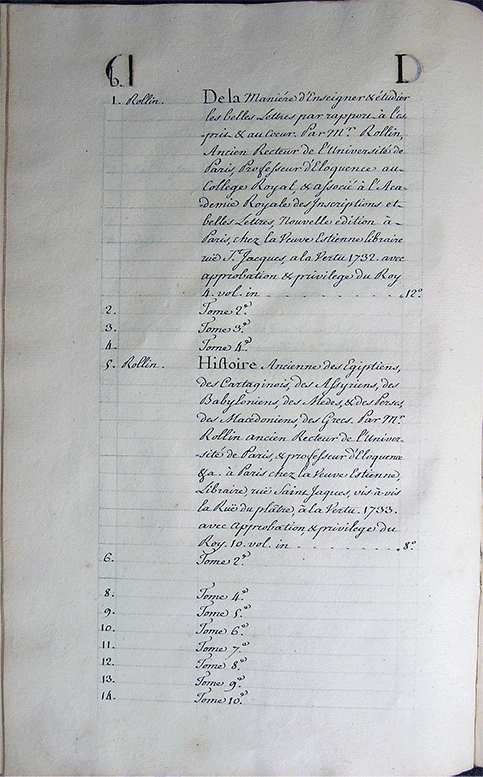 6. D
1. Rollin. De la Maniére d'Enseigner & étudier
les belles Lettres par rapport à l'es
prit & au Coeur. Par Mr. Rollin,
Ancien Recteur de l'Université de
Paris, Professeur d'Eloquence au
College Royal, & associé à l'Aca
demie Royale des Inscriptions et
belles Lettres, Nouvelle edition à
Paris, chez la Veuve Estienne libraire
ruë St. Jacques, a la Vertu 1732. avec
approbation & privilege du Roy
4. vol. in . . . . . . . . . . 12o
2. Tome 2e.
3. Tome 3e.
4. Tome 4e.
5. Rollin. Histoire Ancienne des Egiptiens,
des Cartaginois, des Assyriens, des
Babyloniens, des Medes, & des Perses,
des Macedoniens, des Grecs. Par Mr.
Rollin ancien Recteur de l'Univer-
sité de Paris, & professeur d'Eloquence
&a. à Paris chez la Veuve Estienne,
Libraire, ruë Saint Jaques, vis à vis
la Ruë du plâtre, à la Vertu. 1733.
avec Approbation, & privilege du
Roy. 10. vol. in . . . . . . . . 8o
6. Tome 2e.
8. Tome 4e.
9. Tome 5e.
10. Tome 6e.
11. Tome 7e.
12. Tome 8e.
13. Tome 9e.
14. Tome 10e.